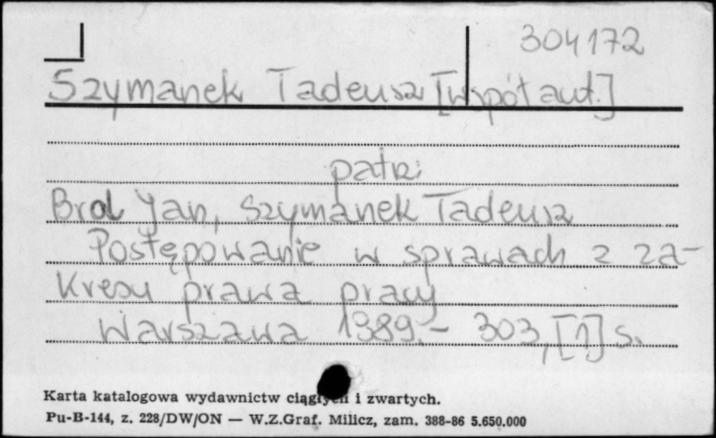 304172
Szymanek Tadeusz [współaut.]
patrz:
Brol Jan, Szymanek Tadeusz
Postępowanie w sprawach z za-
kresu prawa pracy
Warszawa 1989.- 303,[1] s.
Karta katalogowa wydawnictw ciągłych i zwartych.
Pu-B-144, z. 228/DW/ON — W.Z.Graf. Milicz, zam. 388-86 5.650.000